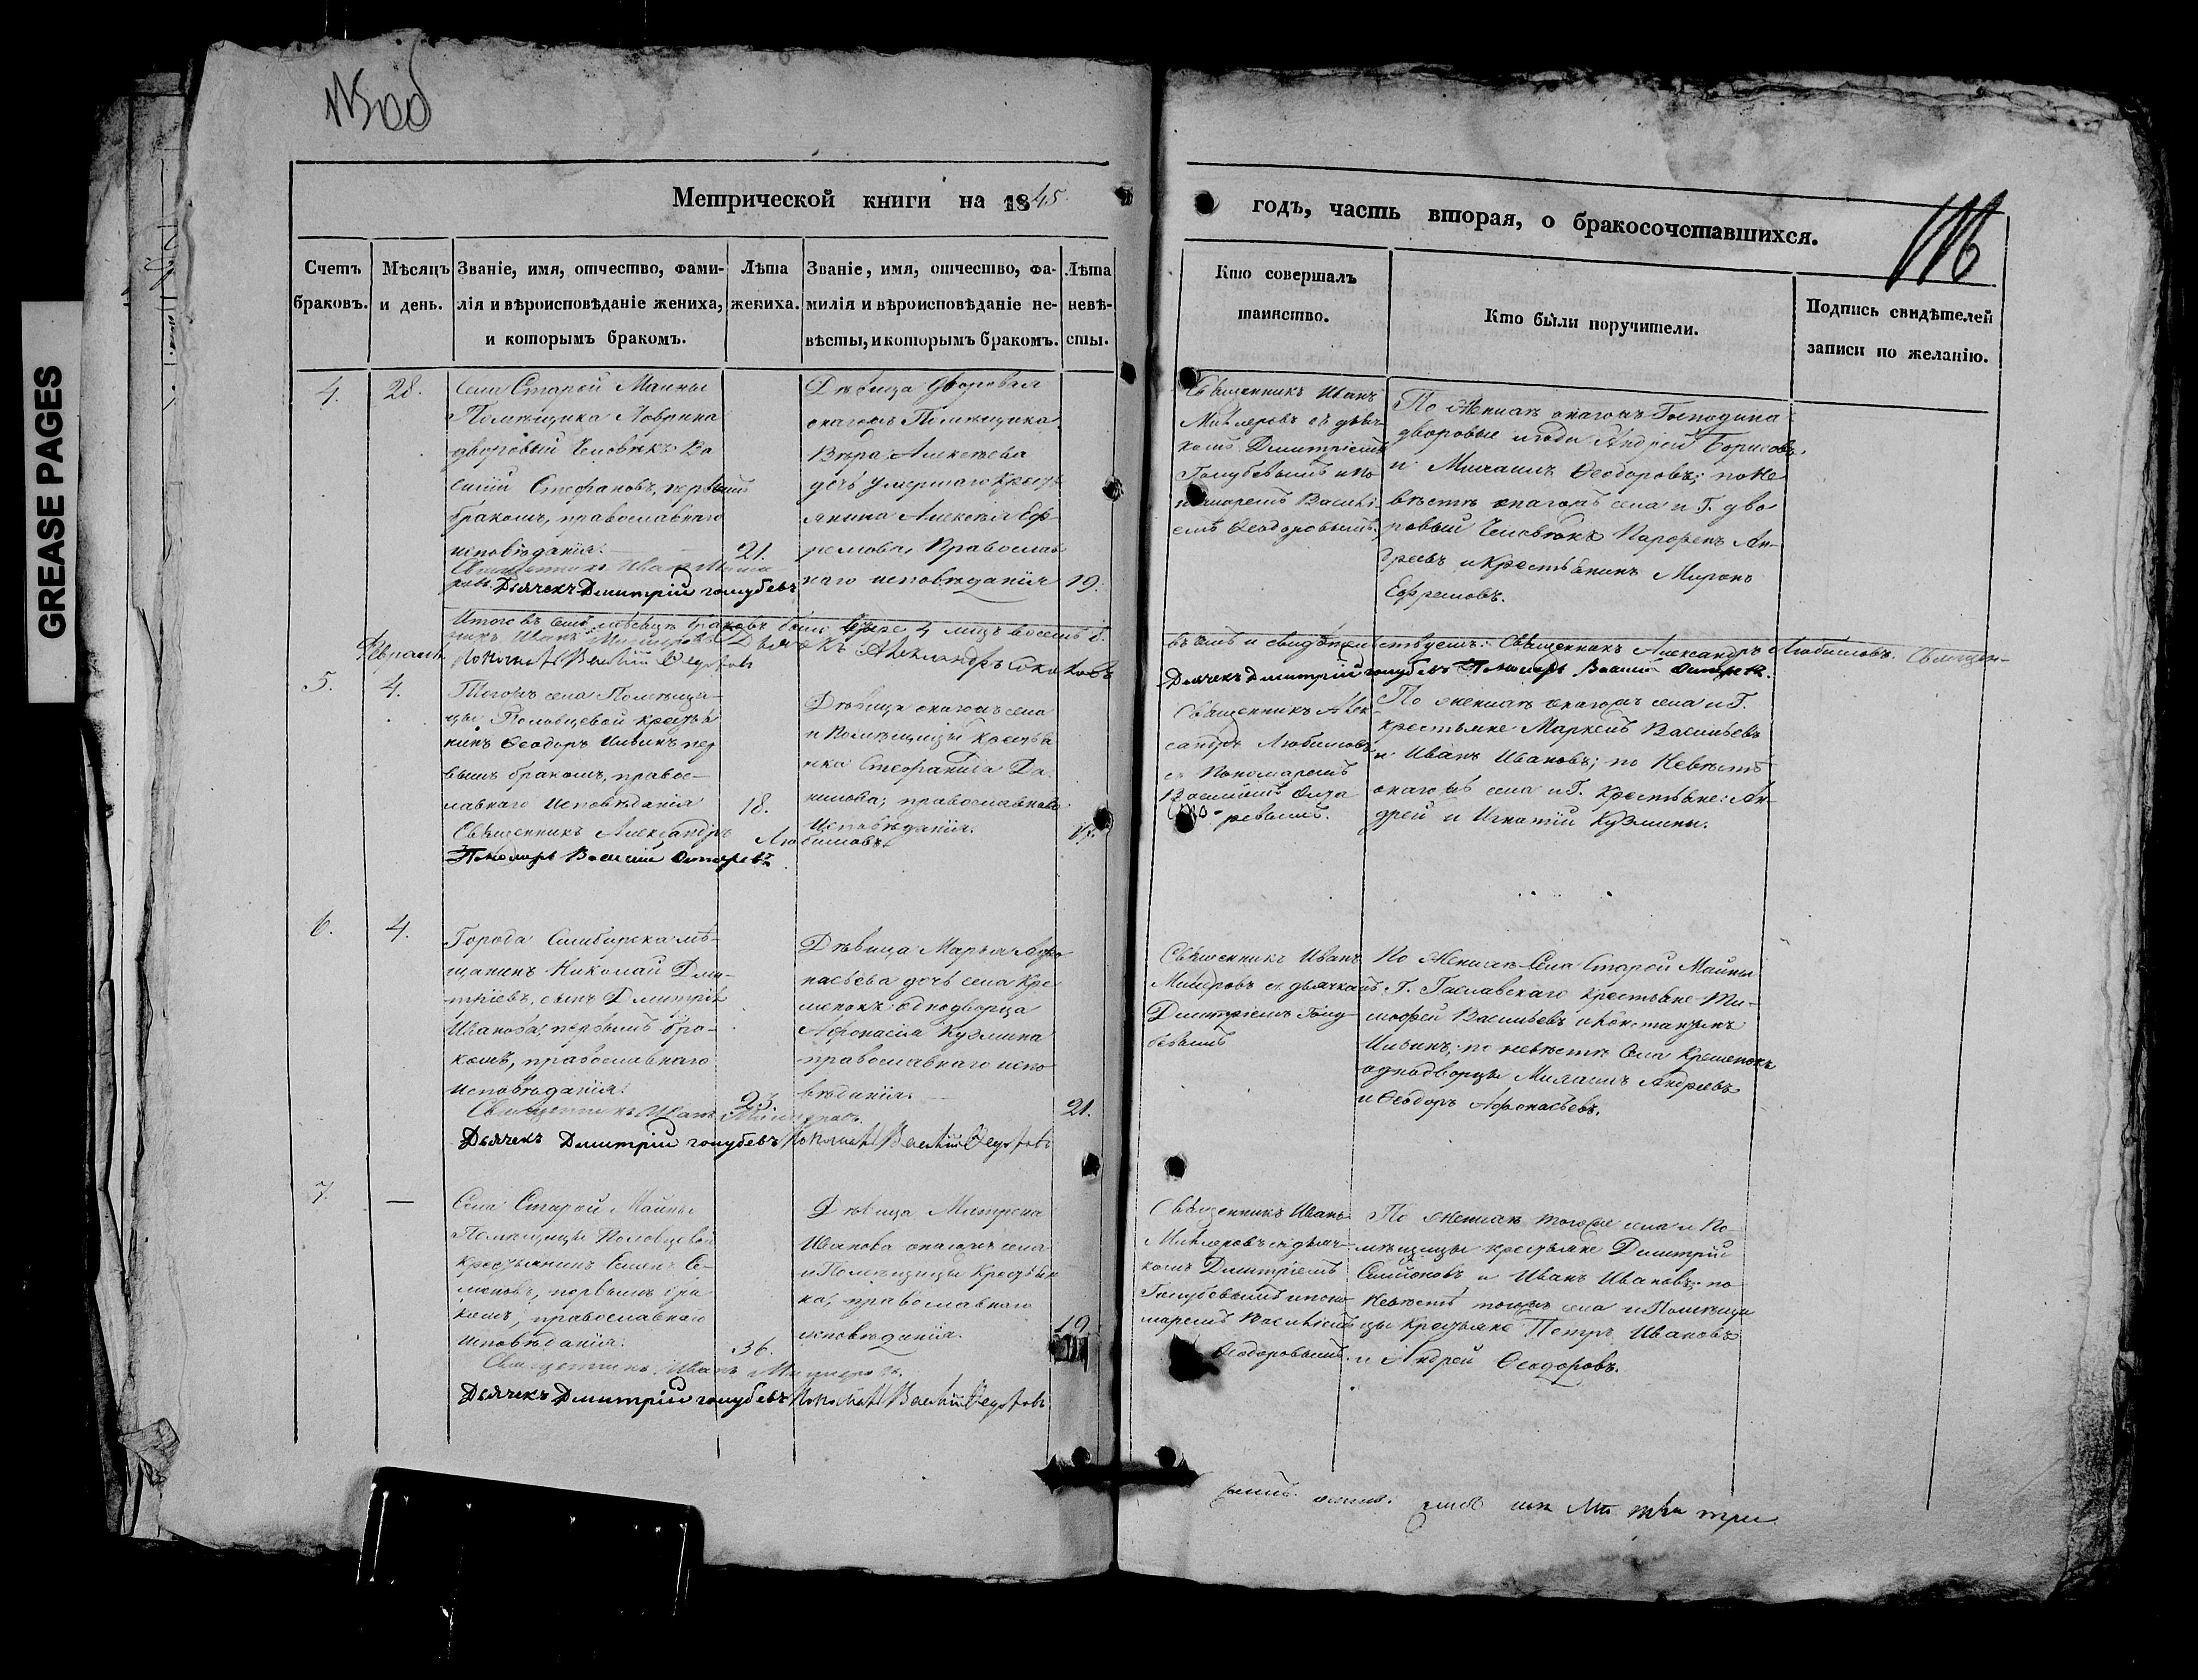 GREASE PAGES
Метрической книги на 1845.
годъ, часть вторая, о бракосочетавшихся.
Счетъ браковъ.
Мѣсяцъ и день.
Званіе, имя, отчество, фами-
лія и вѣроисповѣданіе жениха,
и которымъ бракомъ.
Лѣта
жениха.
Званіе, имя, отчество, фа-
милія и вѣроисповѣданіе не-
вѣсты, и которымъ бракомъ.
Лѣта
невѣ-
сты.
Кто совершалъ
таинство.
Кто были поручители.
Подпись свидѣтелей
записи по желанію.
4.
28.
Села Старой Майны
Помѣщика
дворовый Человѣкъ Ва
силій Стефановъ, первымъ
бракомъ, православнаго
исповѣданія.
21.
Священникъ Иванъ
Дьячекъ Димитрій голубевъ
Дѣвица дворовая
онагожъ Помѣщика
Вѣра Алексѣева
дочь умершаго Кресть
янина Алексѣя Еф-
ремова, Православ
наго исповѣданія
19.
Священникъ Иванъ
Милеровъ съ дьяч-
комъ Димитріемъ
Голубевымъ и по-
номаремъ Василі-
емъ Ѳеодоровымъ.
По Женихѣ онагожъ Господина
дворовые люди Андрей Борисовъ
и Михаилъ Ѳеодоровъ; по Не
вѣстѣ онагожъ села и Г. дво
ровый Человѣкъ Парфенъ Ан-
дреевъ и Крестьянинъ Миронъ
Ефремовъ.
Итого въ семъ мѣсяцѣ браковъ было 4 лицъ восемь
Пономарь Василій Ѳедоровъ
Дьячокъ Александръ Соколовъ
свидѣтельствуемъ: Священникъ Александръ Любимовъ. Священ-
никъ Иванъ Милеровъ
Дьячекъ Димитрій голубевъ Пономарь Василій
Февраля
5.
4.
Тогожъ села Помѣщи-
цы Половцевой крестья
нинъ Ѳеодоръ Ильинъ пер
вымъ бракомъ, правос-
лавнаго Исповѣданія
18.
Священникъ Александръ Любимовъ.
Пономарь Василій
Дѣвица онагожъ села
и Помѣщицы Крестьян
ка Стефанида Да
нилова; православнаго
Исповѣданія.
Священникъ Алек
сандръ Любимовъ
съ Пономаремъ
Василіемъ
По женихѣ онагожъ села и Г.
крестьяне Маркелъ Васильевъ
и Иванъ Ивановъ; по Невѣстѣ
онагожъ села и Г. Крестьяне: Ан-
дрей и Игнатій Кузмины.
6.
4.
Города Симбирска мѣ-
щанинъ Николай Дми-
тріевъ, сынъ Дмитрія
Иванова; первымъ бра-
комъ, православнаго
исповѣданія.
23.
Священникъ Иванъ Милеровъ.
Дьячекъ Димитрій голубевъ Пономарь Василій Ѳедоровъ
Дѣвица Марья Аѳо
насьева дочь села Кре
менокъ однодворца
Афонасія Кузмина
православнаго испо
вѣданія.
21.
Священникъ Иванъ
Милеровъ съ дьячкомъ
Димитріемъ Голу-
бевымъ
По Женихѣ Села Старой Майны
Г. крестьяне Ти-
мофей Васильевъ и Константинъ
Ильинъ; по невѣстѣ Села Кременокъ
однодворцы Михаилъ Андреевъ
и Ѳеодоръ Афонасьевъ.
7.
—
Села Старой Майны
Помѣщицы Половцевой
крестьянинъ Семенъ Се-
меновъ, первымъ бра
комъ, православнаго
исповѣданія.
36.
Священникъ Иванъ Милеровъ.
Дьячекъ Димитрій голубевъ Пономарь Василій Ѳедоровъ
Дѣвица Матрена
Иванова онагожъ села
и Помѣщицы Крестьян
ка, православнаго
исповѣданія.
19.
Священникъ Иванъ
Милеровъ съ дьяч-
комъ Димитріемъ
Голубевымъ и поно
маремъ Василіемъ
Ѳеодоровымъ.
По Женихѣ тогоже села и По-
мѣщицы крестьяне Димитрій
Симіоновъ и Иванъ Ивановъ; по
Невѣстѣ тогожъ села и Помѣщи
цы Крестьяне Петръ Ивановъ
и Андрей Ѳеодоровъ.